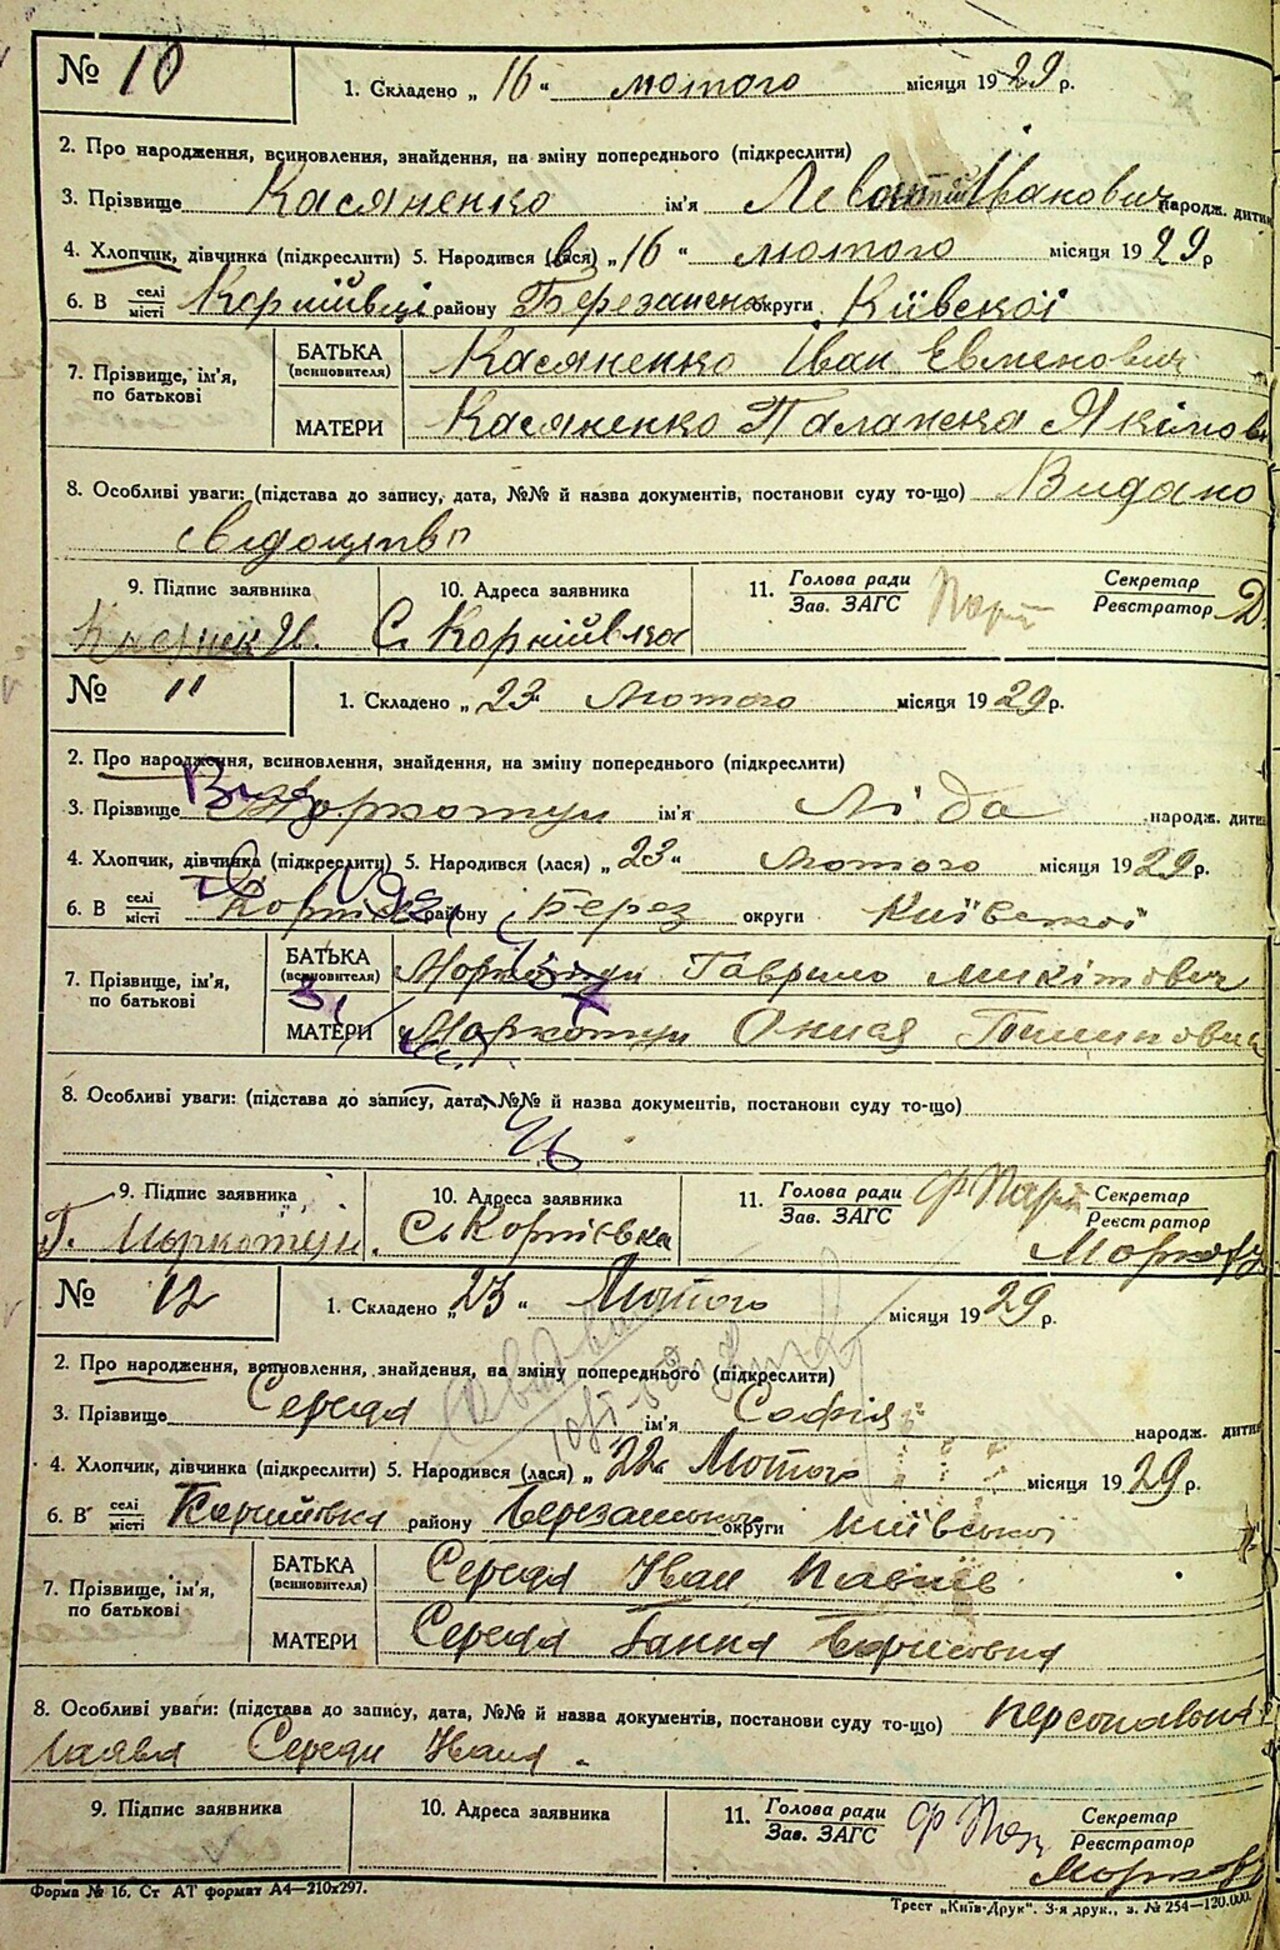 № 10
1. Складено „ 16 “ лютого місяця 1929 р.
2. Про народження, всиновлення, знайдення, на зміну попереднього (підкреслити)
3. Прізвище Касяненко ім'я Іванович народж. дитин
4. Хлопчик, дівчинка (підкреслити) 5. Народився (лася) „ 16 “ лютого місяця 1929 р
6. В селі місті Корніївці району округи Київскої
7. Прізвище, ім'я, по батькові
БАТЬКА (всиновителя) Касяненко Іван Евменович
МАТЕРИ Касяненко Палажка Якімов
8. Особливі уваги: (підстава до запису, дата, №№ й назва документів, постанови суду то-що) Видано
свідоцтво
9. Підпис заявника 10. Адреса заявника 11. Голова ради Секретар
Зав. ЗАГС Реєстратор
С. Корніївка
№ 11
1. Складено „ 23 “ Лютого місяця 1929 р.
2. Про народження, всиновлення, знайдення, на зміну попереднього (підкреслити)
3. Прізвище Моркотун ім'я Ліда народж. дитин
4. Хлопчик, дівчинка (підкреслити) 5. Народився (лася) „ 23 “ Лютого місяця 1929 р.
6. В селі місті району Берез округи Київської
7. Прізвище, ім'я, по батькові
БАТЬКА (всиновителя) Моркотун Гаврило Микітович
МАТЕРИ Моркотун
8. Особливі уваги: (підстава до запису, дата, №№ й назва документів, постанови суду то-що)
9. Підпис заявника 10. Адреса заявника 11. Голова ради Секретар
Зав. ЗАГС Реєстратор
Г. Моркотун. С. Корнієвка
№ 12
1. Складено „ 23 “ Лютого місяця 1929 р.
2. Про народження, всиновлення, знайдення, на зміну попереднього (підкреслити)
3. Прізвище Середа ім'я Софія народж. дитин
4. Хлопчик, дівчинка (підкреслити) 5. Народився (лася) „ 22 “ Лютого місяця 1929 р.
6. В селі місті Корнійовка району округи Київської
7. Прізвище, ім'я, по батькові
БАТЬКА (всиновителя) Середа Іван
МАТЕРИ Середа Ганна Борисовна
8. Особливі уваги: (підстава до запису, дата, №№ й назва документів, постанови суду то-що) персональна
заява Середи Івана.
9. Підпис заявника 10. Адреса заявника 11. Голова ради Секретар
Зав. ЗАГС Реєстратор
Форма № 16. Ст АТ формат А4—210х297.
Трест „Київ-Друк“. 3-я друк., з. № 254—120.000.